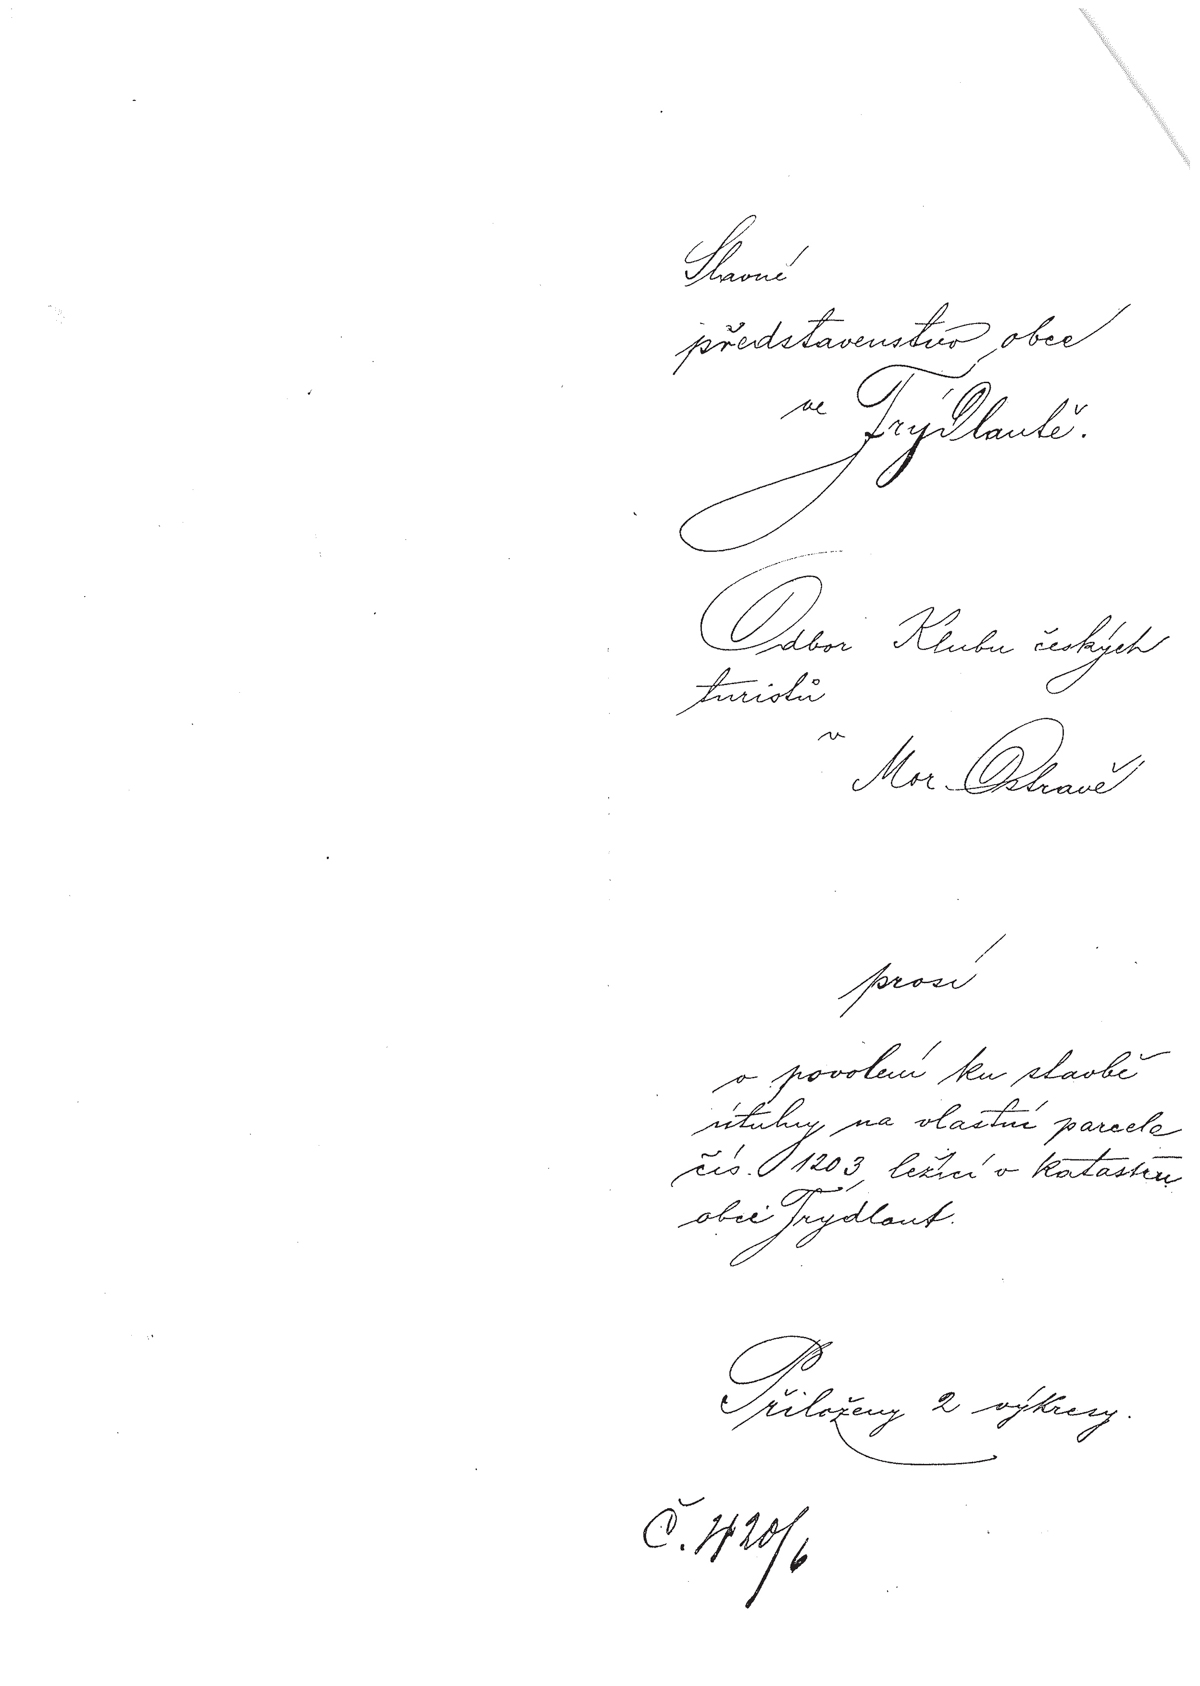 Slavné
představenstvo obce
ve Frýdlantě.
Odbor Klubu českých
turistů
v
Mor. Ostravě
prosí
o povolení ku stavbě
útulny na vlastní parcele
čís. 1203, ležící v katastru
obce Frýdlant.
Přiloženy 2 výkresy.
Č. 420/6